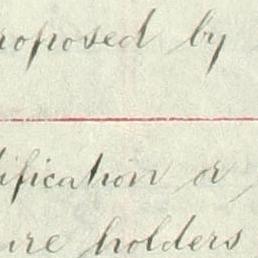 roposed by
ification or
ure holders